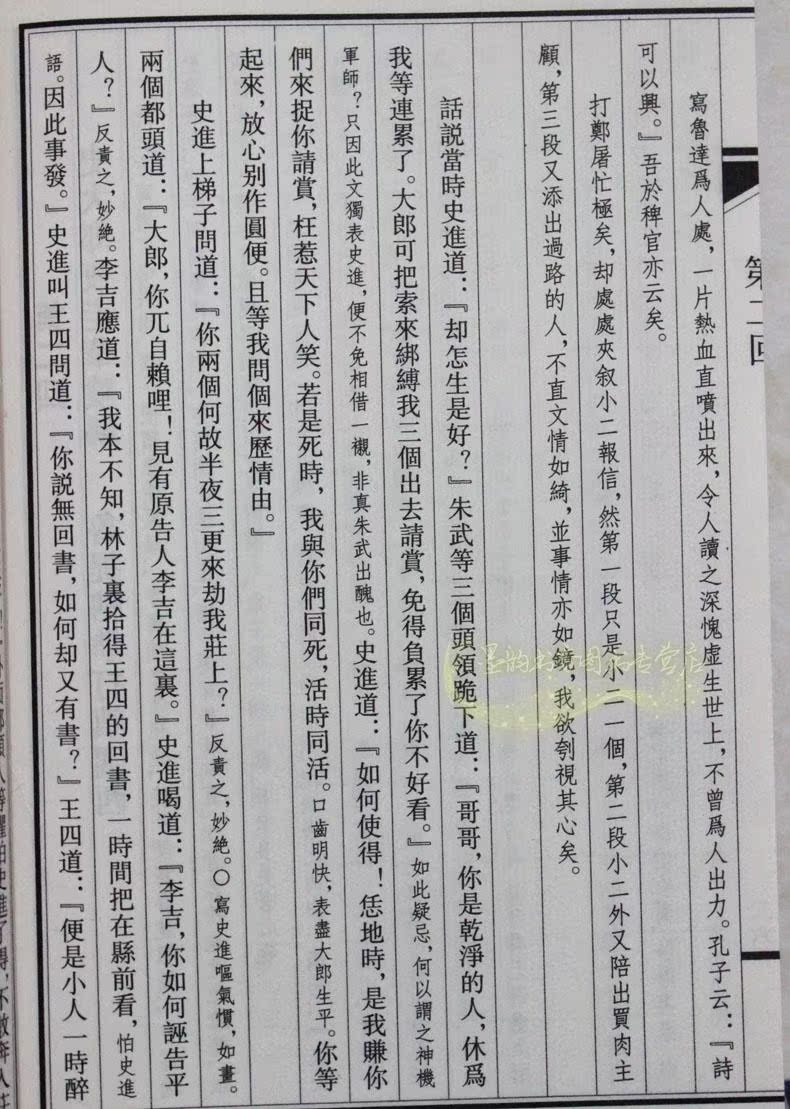 第二回
寫魯達爲人處，一片熱血直噴出來，令人讀之深愧虛生世上，不曾爲人出力。孔子云：『詩
可以興。』吾於稗官亦云矣。
打鄭屠忙極矣，却處處夾叙小二報信，然第一段只是小二一個，第二段小二外又陪出買肉主
顧，第三段又添出過路的人，不直文情如綺，並事情亦如鏡，我欲刳視其心矣。
話説當時史進道：『却怎生是好？』朱武等三個頭領跪下道：『哥哥，你是乾淨的人，休爲
我等連累了。大郎可把索來綁縛我三個出去請賞，免得負累了你不好看。』如此疑忌，何以謂之神機
軍師？只因此文獨表史進，便不免相借一襯，非真朱武出醜也。史進道：『如何使得！恁地時，是我賺你
們來捉你請賞，枉惹天下人笑。若是死時，我與你們同死，活時同活。口齒明快，表盡大郎生平。你等
起來，放心别作圓便。且等我問個來歷情由。』
史進上梯子問道：『你兩個何故半夜三更來劫我莊上？』反責之，妙絶。○寫史進嘔氣慣，如畫。
兩個都頭道：『大郎，你兀自賴哩！見有原告人李吉在這裏。』史進喝道：『李吉，你如何誣告平
人？』反責之，妙絶。李吉應道：『我本不知，林子裏拾得王四的回書，一時間把在縣前看，怕史進
語。因此事發。』史進叫王四問道：『你説無回書，如何却又有書？』王四道：『便是小人一時醉